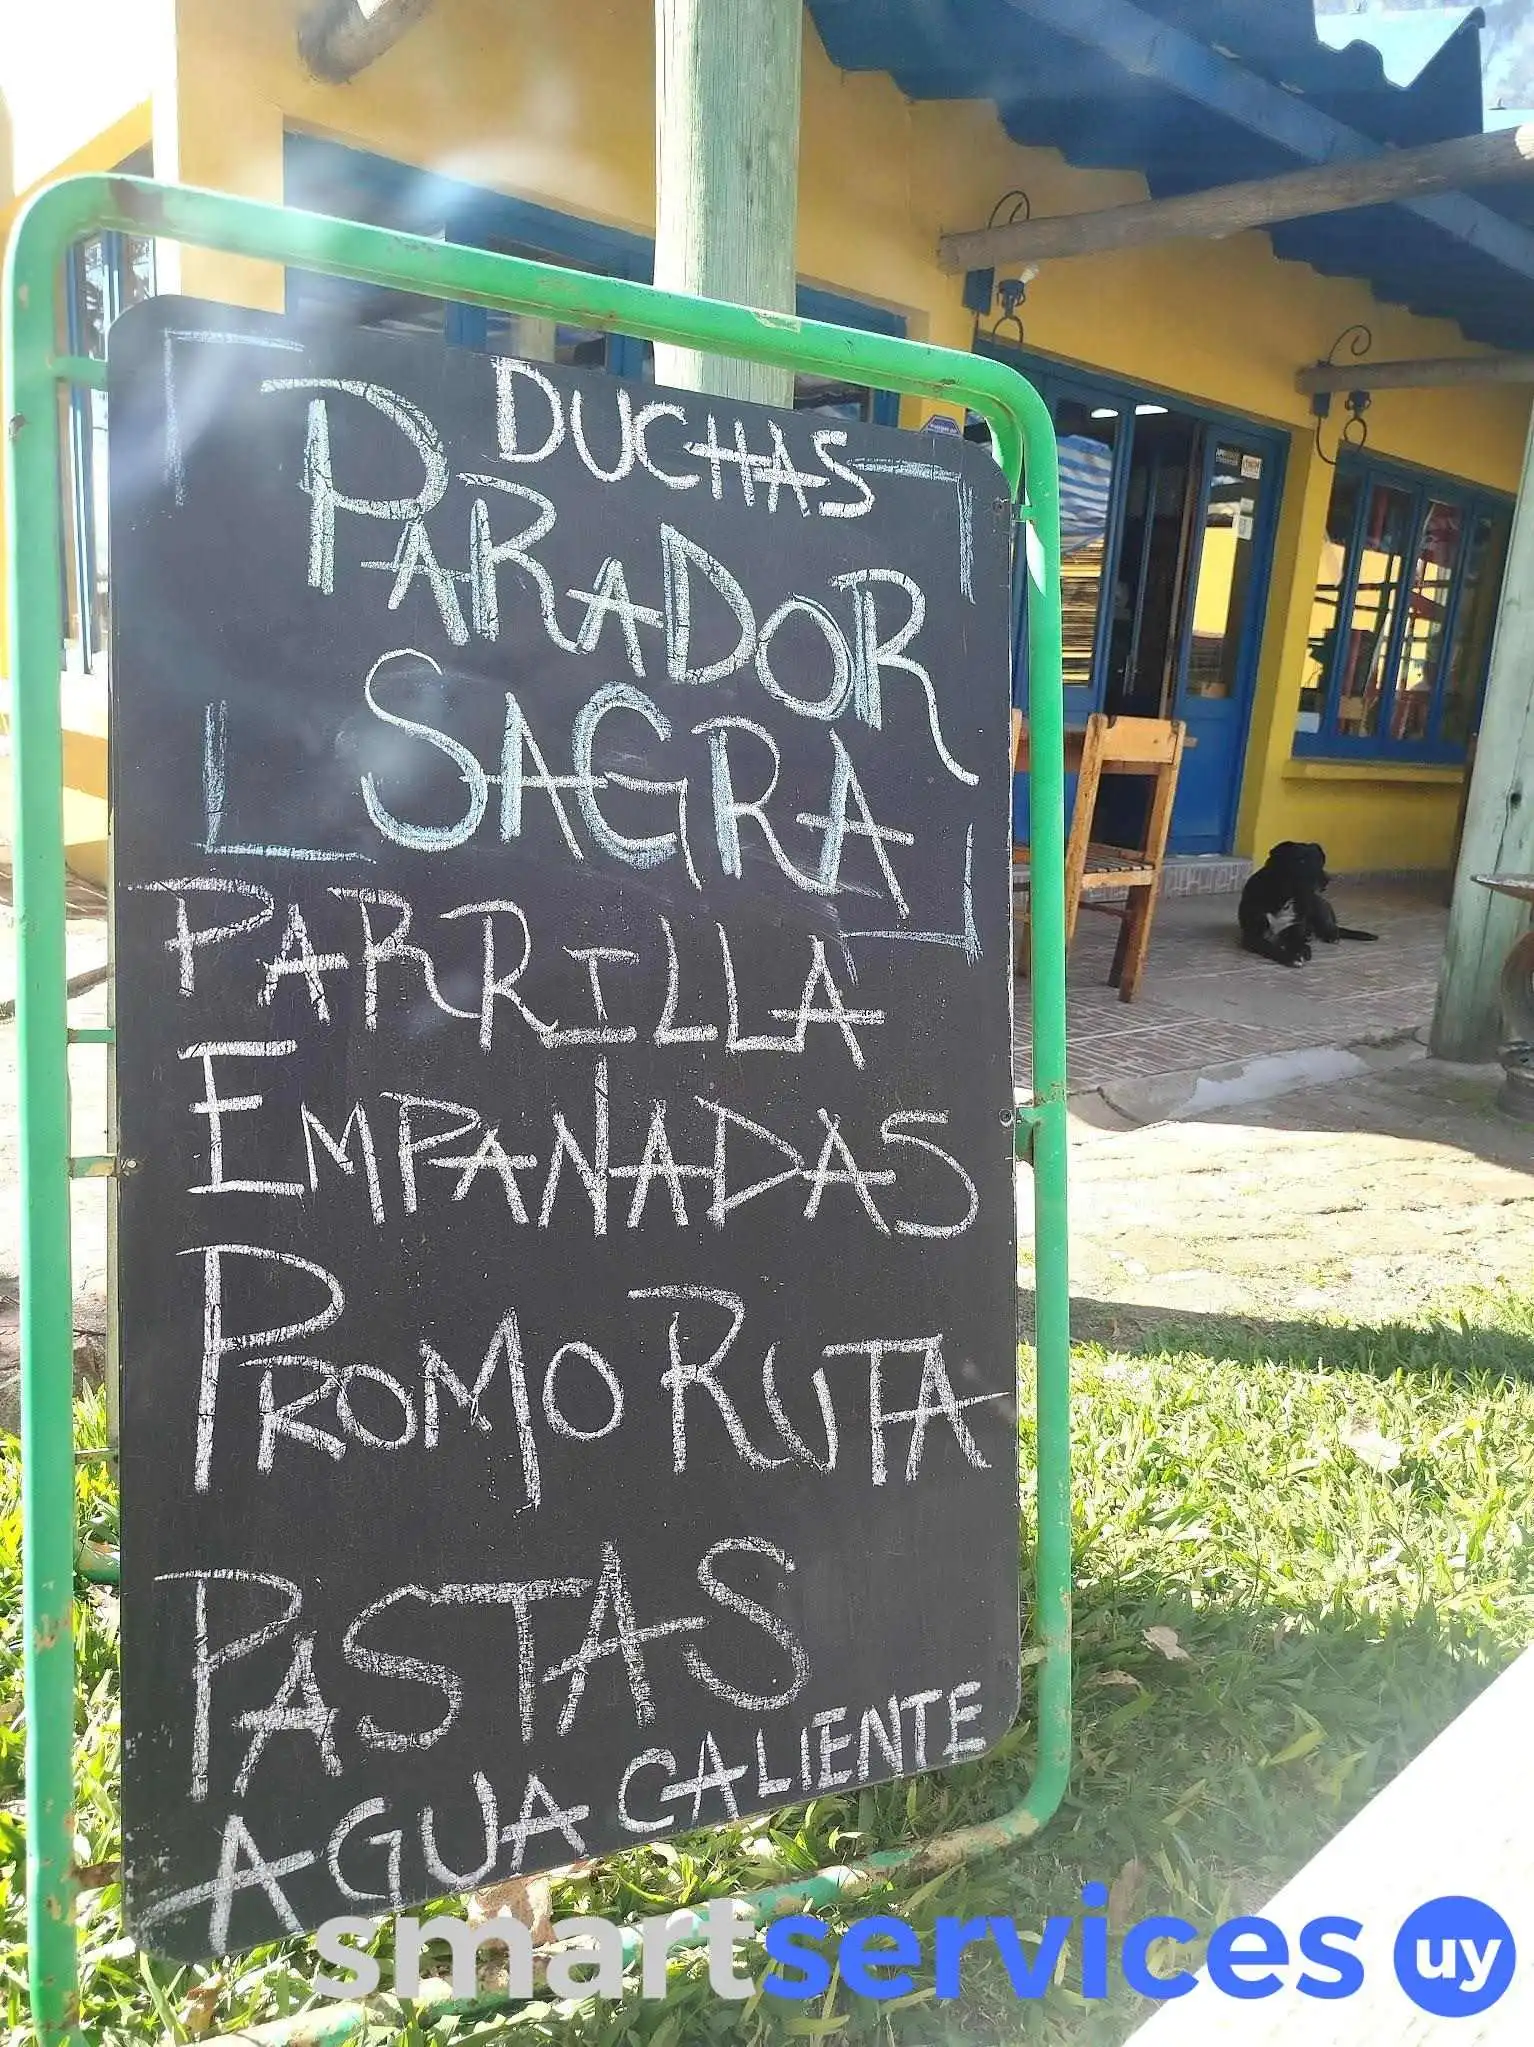 DUCHAS
PARADOR
SAGRA
PARRILLA
EMPANADAS
PROMO RUTA
PASTAS
AGUA CALIENTE
smartservices uy